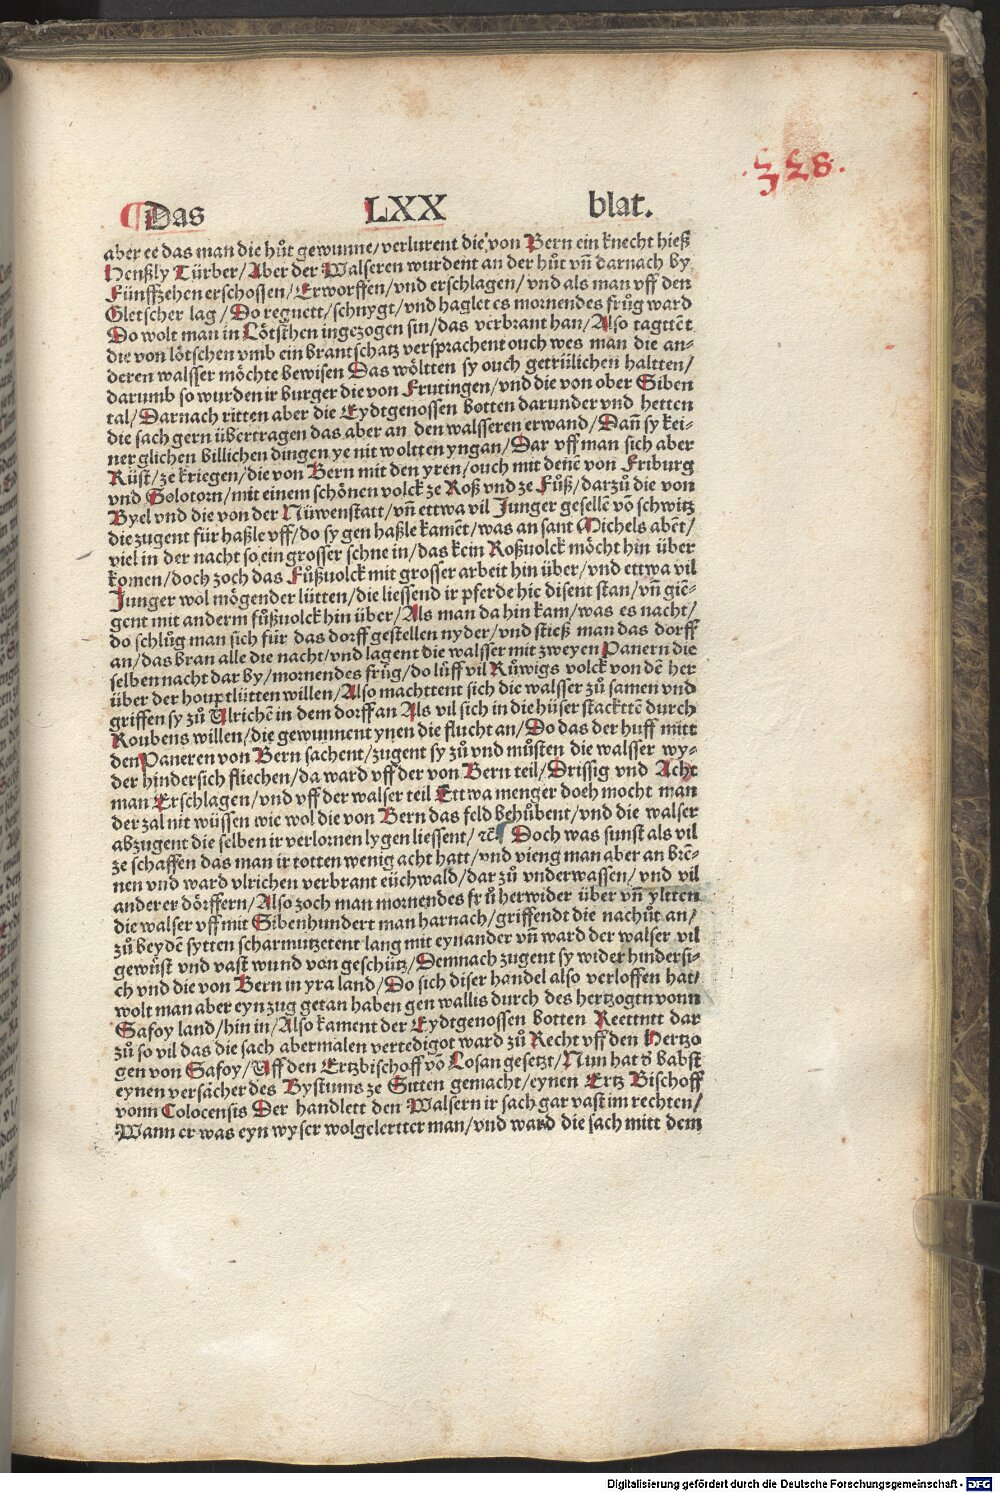 328.
¶ Das LXX blat.
aber ee das man die hůt gewunne/verlurent die von Bern ein knecht hieß
Henßly Türber/Aber der Walseren wurdent an der hůt vñ darnach by
Fünffzehen erschossen/Erworffen/vnd erschlagen/vnd als man vff den
Gletscher lag/Do regnett/schnygt/vnd haglet es mornendes frůg ward
Do wolt man in Lötschen ingezogen sin/das verbrant han/Also tagttēt
die von lötschen vmb ein brantschatz versprachent ouch wes man die an-
deren walsser möchte bewisen Das wöltten sy ouch getrülichen haltten/
darumb so wurden ir burger die von Frutingen/vnd die von ober Siben
tal/Darnach ritten aber die Eydtgenossen botten darunder vnd hetten
die sach gern übertragen das aber an den walsseren erwand/Dañ sy kei-
ner glichen billichen dingen ye nit woltten yngan/Dar vff man sich aber
Rüst/ze kriegen/die von Bern mit den yren/ouch mit denē von Friburg
vnd Solotorn/mit einem schönen volck ze Roß vnd ze Fůß/darzů die von
Byel vnd die von der Nüwenstatt/vñ ettwa vil Junger gesellē vō schwitz
die zugent für haßle vff/do sy gen haßle kamēt/was an sant Michels abēt/
viel in der nacht so ein grosser schne in/das kein Roßuolck möcht hin über
komen/doch zoch das Fůßuolck mit grosser arbeit hin über/vnd ettwa vil
Junger wol mögender lütten/die liessend ir pferde hie disent stan/vñ giē-
gent mit anderm fůßuolck hin über/Als man da hin kam/was es nacht/
do schlůg man sich für das dorff gestellen nyder/vnd stieß man das dorff
an/das bran alle die nacht/vnd lagent die walsser mit zweyen Panern die
selben nacht dar by/mornendes frůg/do lůff vil Růwigs volck von dē her
über der houptlütten willen/Also machttent sich die walsser zů samen vnd
griffen sy zů Ulrichē in dem dorff an Als vil sich in die hüser stacktē durch
Roubens willen/die gewunnent ynen die flucht an/Do das der huff mitt
den Paneren von Bern sachent/zugent sy zů vnd můsten die walsser wy-
der hindersich fliechen/da ward vff der von Bern teil/Drissig vnd Acht
man Erschlagen/vnd vff der walser teil Ettwa menger doch mocht man
der zal nit wüssen wie wol die von Bern das feld behůbent/vnd die walser
abzugent die selben ir verlornen lygen liessent/ꝛc̄ Doch was sunst als vil
ze schaffen das man ir totten wenig acht hatt/vnd vieng man aber an brē-
nen vnd ward vlrichen verbrant eüchwald/dar zů vnderwassen/vnd vil
anderer dörffern/Also zoch man mornendes frů herwider über vñ yltten
die walser vff mit Sibenhundert man harnach/griffendt die nachůt an/
zů beydē sytten scharmutzetent lang mit eynander vñ ward der walser vil
gewůst vnd vast wund von geschütz/Demnach zugent sy wider hindersi-
ch vnd die von Bern in yra land/Do sich diser handel also verloffen hat/
wolt man aber eyn zug getan haben gen wallis durch des hertzogen vonn
Safoy land/hin in/Also kament der Eydtgenossen botten Reettntt dar
zů so vil das die sach abermalen vertedigot ward zů Recht vff den Hertzo
gen von Safoy/Uff den Ertzbischoff vō Losan gesetzt/Nun hat d̕ babst
eynen versächer des Bystums ze Sitten gemacht/eynen Ertz Bischoff
vonn Colocensis Der handlett den Walsern ir sach gar vast im rechten/
Wann er was eyn wyser wolgelertter man/vnd ward die sach mitt dem
Digitalisierung gefördert durch die Deutsche Forschungsgemeinschaft - DFG